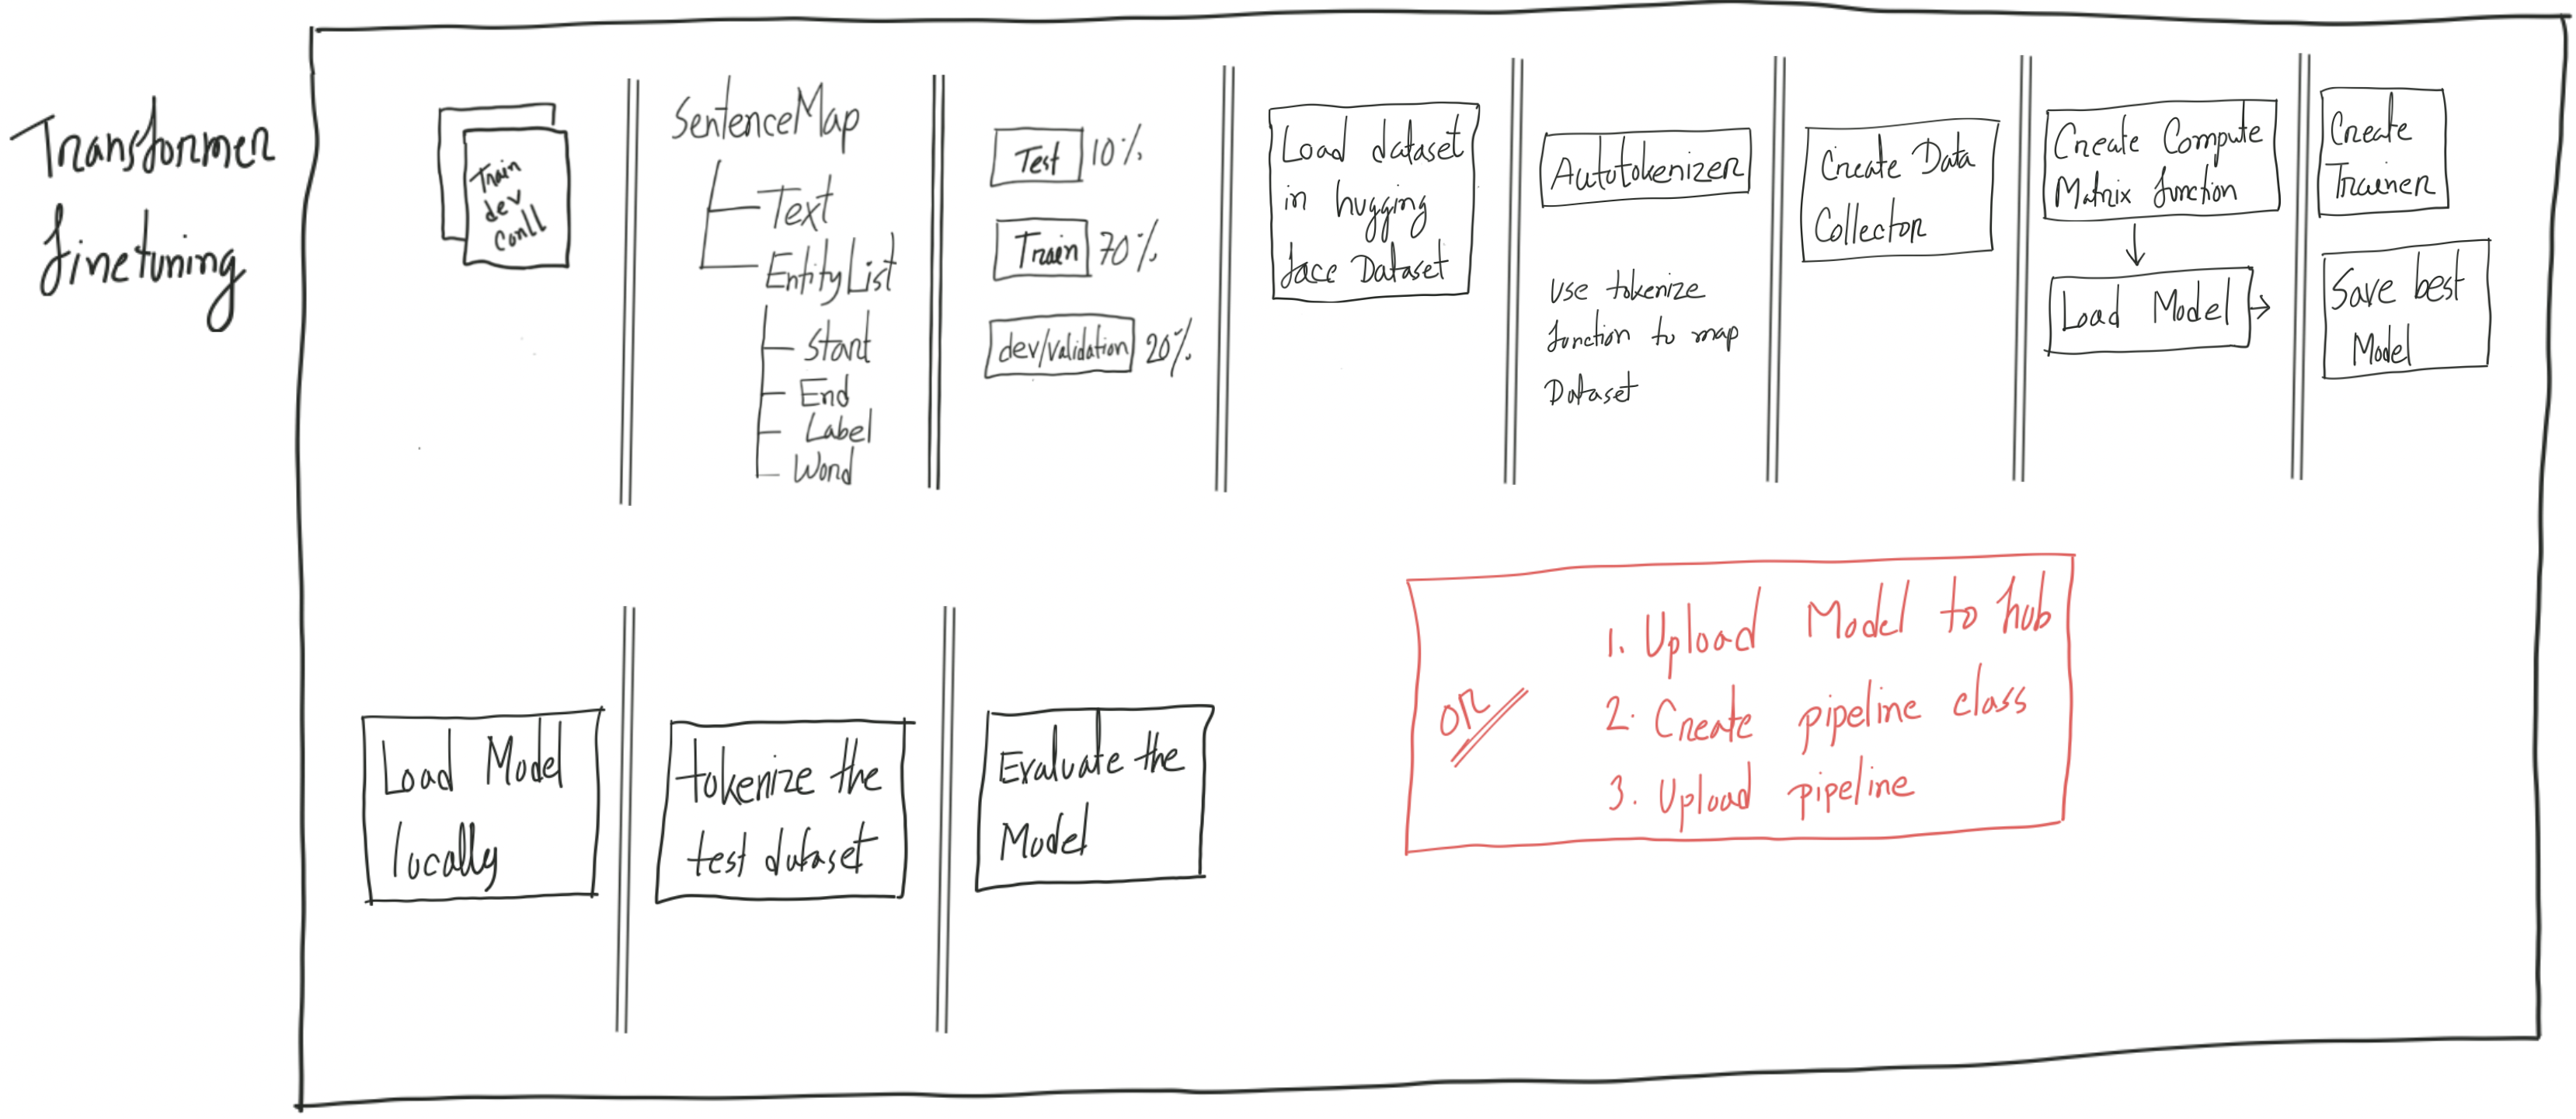 Transformer
finetuning
Train
dev
conll
SentenceMap
Text
EntityList
Start
End
Label
Word
Test 10%
Train 70%
dev/validation 20%
Load dataset
in hugging
face Dataset
Autotokenizer
Use tokenize
function to map
Dataset
Create Data
Collector
Create Compute
Matrix function
Load Model
Create
Trainer
Save best
Model
Load Model
locally
tokenize the
test dataset
Evaluate the
Model
OR
1. Upload Model to hub
2. Create pipeline class
3. Upload pipeline